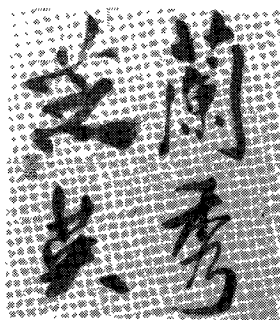 蘭秀
芝英